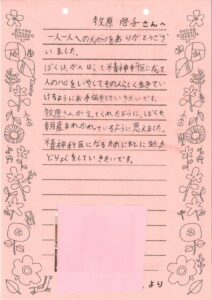 牧原 澄子 さんへ
一人一人へのメッセージをありがとうござ
いました。
ぼくは、がんばって 精神科医になって
人の心をいやしてその人らしく生きてい
けるようにお手伝をしていきたいです。
牧原さんが言ってくれたように、ぼくも
毎日産まれかわっているように思えました。
精神科医になるために少しに、または
どりょくをしていきたいです。
より